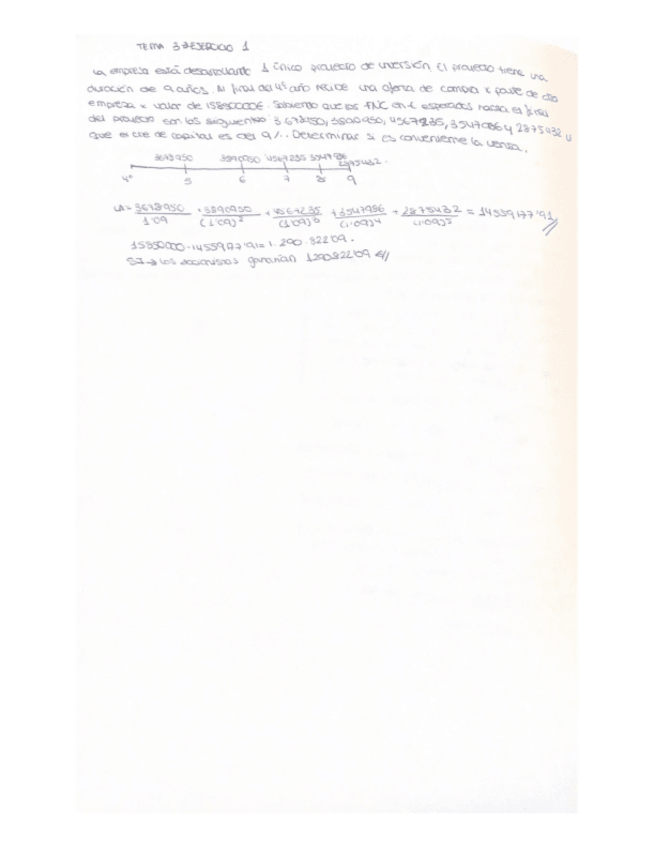 TEMA 3 → EJERCICIO 1
La empresa está desarrollando 1 único proyecto de inversión. El proyecto tiene una
duración de 9 años. Al final del 4º año recibe una oferta de compra x parte de otra
empresa x valor de 15850000€. Sabiendo que los FNC en € esperados hasta el final
del proyecto son los siguientes: 3678950, 3890950, 4567235, 3547986 y 2875432 y
que el cte de capital es del 9%. Determinar si es conveniente la venta.
3678950 3890950 4567235 3547986 2875432.
4º 5 6 7 8 9
VA= 3678950/1'09 + 3890950/(1'09)² + 4567235/(1'09)³ + 3547986/(1'09)⁴ + 2875432/(1'09)⁵ = 14559177'91
15850000-14559177'91=1.290.822'09.
SI → Los accionistas ganarían 1290822'09 €